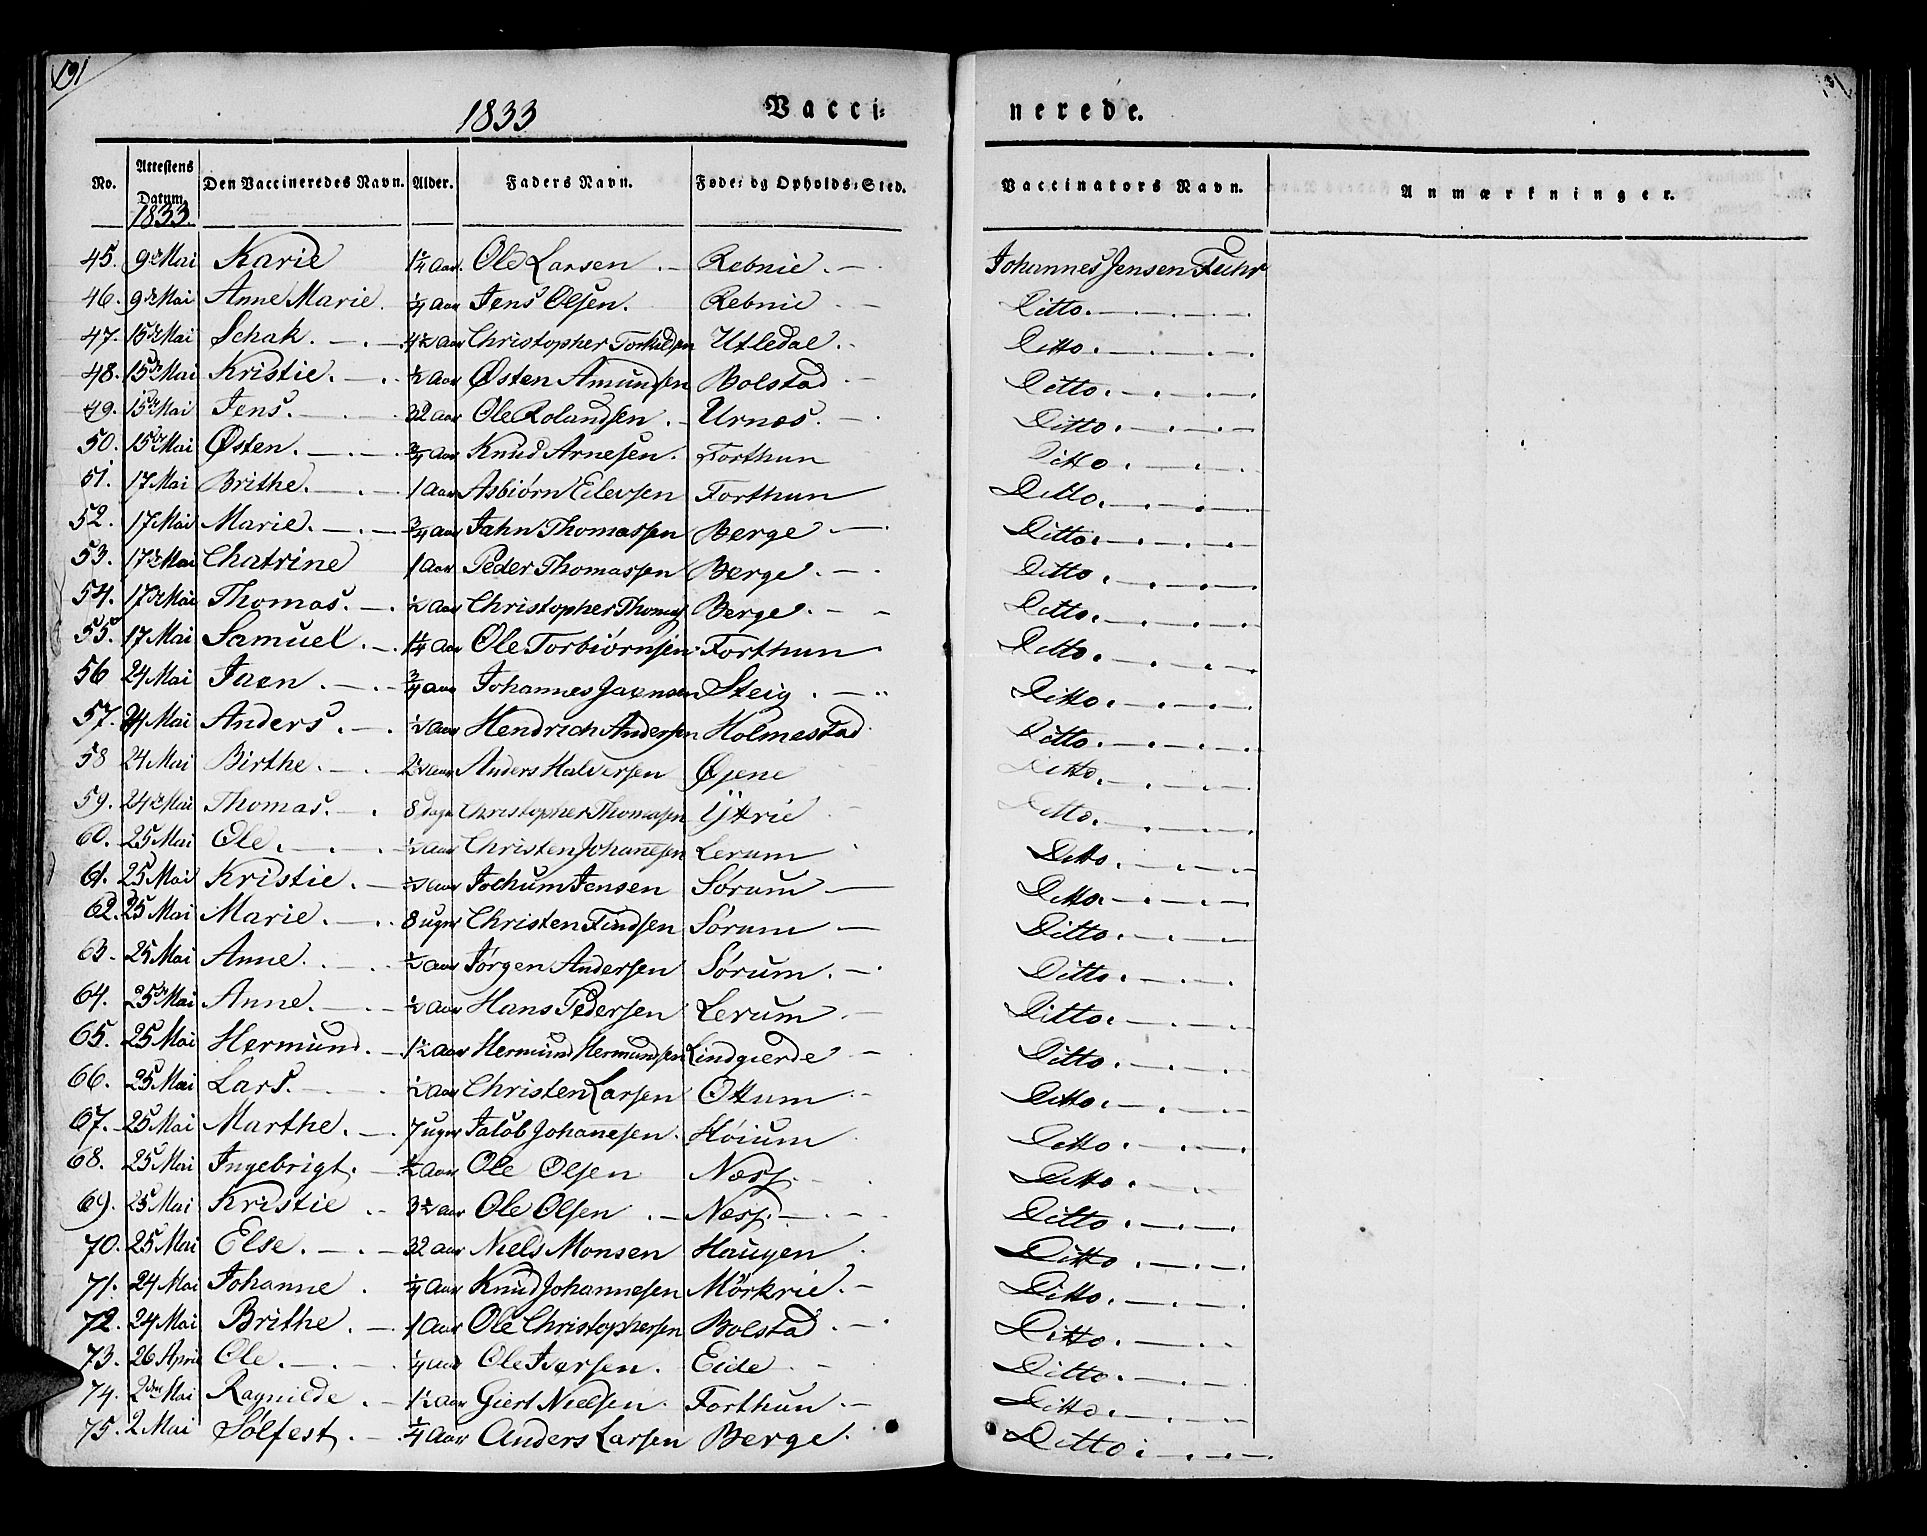 191
1833 Vacci= nerede.
No. Attestens Datum. Den Vaccineredes Navn. Alder. Faders Navn. Føde= og Opholds=Sted. Vaccinators Navn. Anmærkninger.
1833.
45. 9de Mai Karie 1¼ Aar. Ole Larsen. Rebnie. Johannes Jensen Fuhr
46. 9de Mai Anne Marie. ¼ Aar Jens Olsen. Rebnie Ditto.
47. 15de Mai Schak. 4½ Aar Christopher Torkildsen Utledal. Ditto.
48. 15de Mai Kristie. ½ Aar Østen Amundsen Bolstad Ditto.
49. 15de Mai Jens. 22 Aar Ole Rolandsen. Urnæs. Ditto.
50. 15de Mai Østen. ¾ Aar Knud Arnesen. Forthun Ditto.
51. 17 Mai Brithe. 1 Aar Asbiørn Eilevsen Forthun Ditto.
52. 17 Mai Marie. ¾ Aar Jahn Thomassen Berge Ditto.
53. 17de Mai Chatrine 1 Aar Peder Thomassen Berge. Ditto.
54. 17de Mai Thomas. ½ Aar Christopher Thomas Berge. Ditto.
55. 17 Mai Samuel. 1¼ Aar Ole Torbiørnsen Forthun Ditto.
56 24 Mai Jaen. ¾ Aar Johannes Jaensen Steig. Ditto.
57. 24 Mai Anders. ½ Aar Hendrich Andersen Holmestad. Ditto.
58 24 Mai Birthe. 2½ Aar Anders Halversen Øjene Ditto.
59. 24de Mai Thomas. 8 dage Christopher Thomasen Ÿttrie Ditto.
60. 25 Mai Ole. ½ Aar Christen Johanesen Lerum Ditto.
61. 25 Mai Kristie. ½ Aar Jochum Jensen Sørum Ditto.
62. 25 Mai Marie. 8 uger Christen Findsen Sørum Ditto.
63. 25 Mai Anne. ½ Aar Jørgen Andersen Sørum. Ditto.
64. 25de Mai Anne. ½ Aar Hans Pedersen Lerum. Ditto.
65. 25 Mai Hermund. 1½ Aar Hermund Hermundsen Lindgierde Ditto.
66. 25 Mai Lars. ½ Aar Christen Larsen Ottum Ditto.
67. 25 Mai Marthe. 7 uger Jakob Johanesen. Høium Ditto.
68. 25 Mai Ingebrigt. ½ Aar Ole Olsen Næss. Ditto.
69. 25 Mai Kristie 3½ Aar Ole Olsen. Næss. Ditto.
70. 25 Mai Else. 32 Aar Niels Monsen Haugen Ditto.
71. 24 Mai Johanne. ¼ Aar Knud Johannesen Mørkrie. Ditto.
72. 24 Mai Brithe. 1 Aar Ole Christophersen Bolstad. Ditto.
73. 26 April Ole. ¼ Aar Ole Iversen. Eide. Ditto.
74. 2den Mai Ragnilde. 1½ Aar Giert Nielsen. Forthun. Ditto.
75. 2 Mai Sølfest. ¼ Aar Anders Larsen Berge. Ditto.